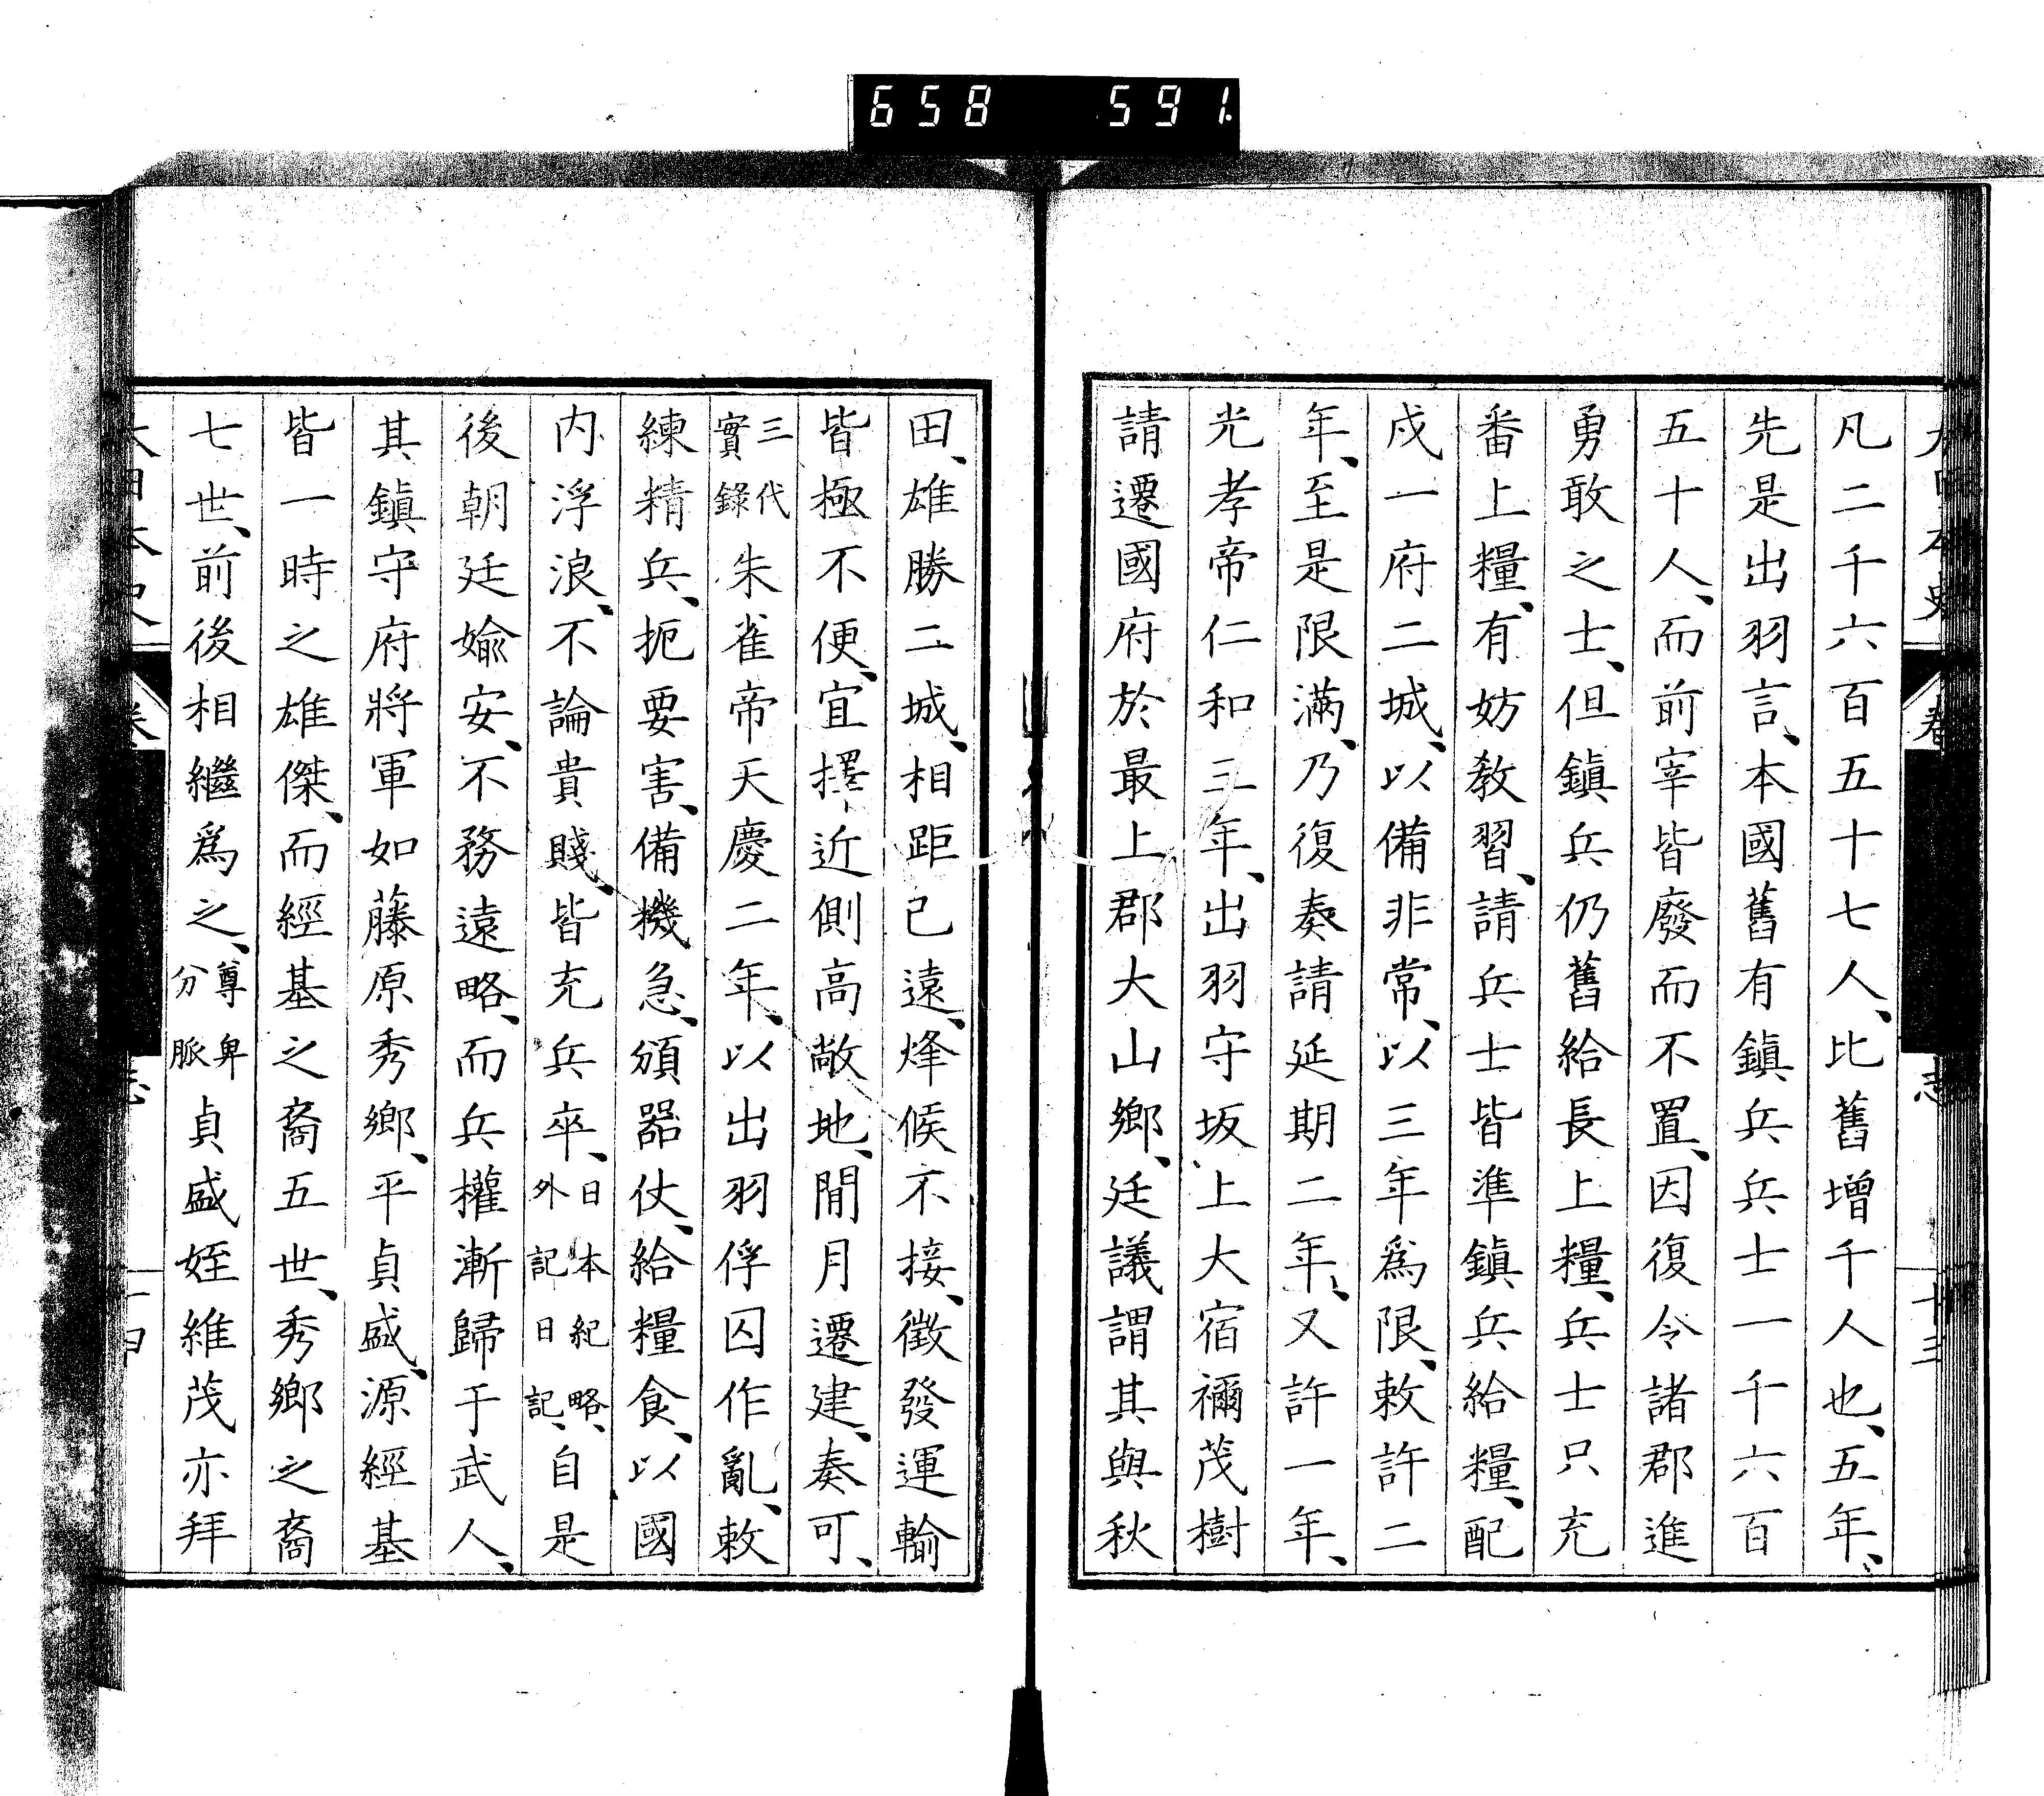 658 591
凡二千六百五十七人、比舊增千人也、五年、
先是出羽言、本國舊有鎭兵兵士一千六百
五十人、而前宰皆廢而不置、因復令諸郡進
勇敢之士、但鎭兵仍舊給長上糧、兵士只充
番上糧、有妨敎習、請兵士皆準鎭兵給糧、配
戍一府二城、以備非常、以三年爲限、敕許二
年、至是限滿、乃復奏請延期二年、又許一年、
光孝帝仁和三年、出羽守坂上大宿禰茂樹
請遷國府於最上郡大山鄉、廷議謂其與秋
田、雄勝二城、相距已遠、烽候不接、徵發運輸
皆極不便、宜擇近側高敞地、閒月遷建、奏可、
三代實錄朱雀帝天慶二年、以出羽俘囚作亂、敕
練精兵、扼要害、備機急、頒器仗、給糧食、以國
内浮浪、不論貴賤、皆充兵卒、日本紀略、外記日記、自是
後朝廷婾安、不務遠略、而兵權漸歸于武人、
其鎭守府將軍如藤原秀鄉、平貞盛、源經基
皆一時之雄傑、而經基之裔五世、秀鄉之裔
七世、前後相繼爲之、尊卑分脈貞盛姪維茂亦拜